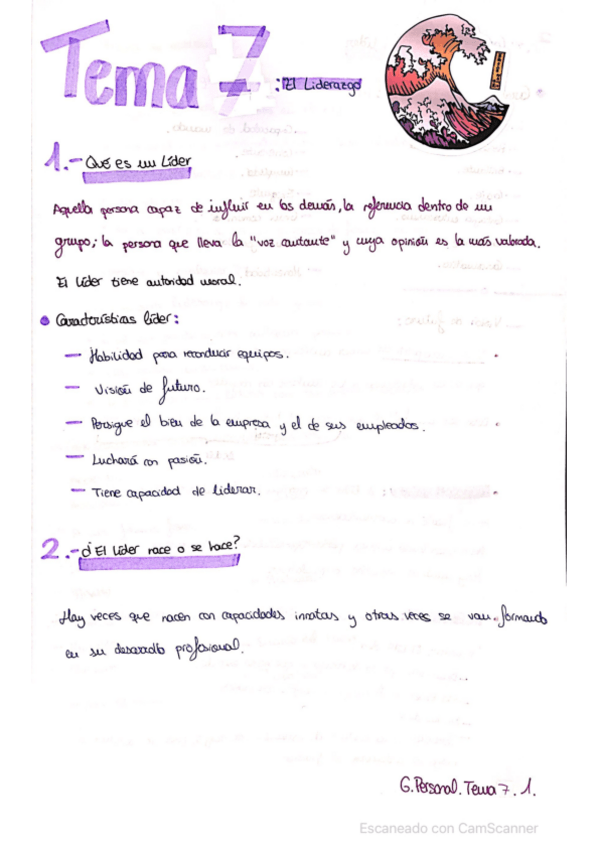 Tema 7 : El Liderazgo
1.- Qué es un Líder
Aquella persona capaz de influir en los demás, la referencia dentro de un
grupo; la persona que lleva la "voz cantante" y cuya opinión es la más valorada.
El líder tiene autoridad moral.
• Características líder:
— Habilidad para reconducir equipos.
— Visión de futuro.
— Persigue el bien de la empresa y el de sus empleados.
— Luchará con pasión.
— Tiene capacidad de liderar.
2.- ¿El líder nace o se hace?
Hay veces que nacen con capacidades innatas y otras veces se van formando
en su desarrollo profesional.
G.Personal.Tema 7.1.
Escaneado con CamScanner